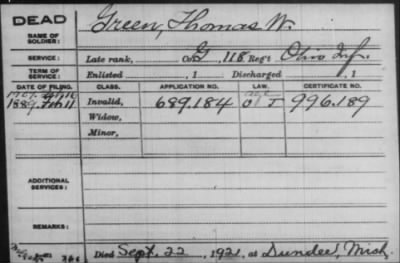 DEAD
NAME OF SOLDIER: Green, Thomas W.
SERVICE: Late rank, Co. G, 118 Reg't Ohio Inf.
TERM OF SERVICE: Enlisted , 1 Discharged , 1
DATE OF FILING. CLASS. APPLICATION NO. LAW. CERTIFICATE NO.
1889 Feb 11 Invalid, 689.184 996.189
Widow,
Minor,
ADDITIONAL SERVICES:
REMARKS:
Died Sept. 22, 1921, at Dundee, Mich.